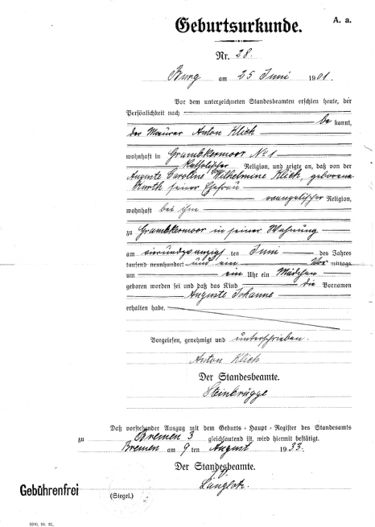 A. a.
Geburtsurkunde.
Nr. 28.
Burg am 25 Juni 1901.
Vor dem unterzeichneten Standesbeamten erschien heute, der
Persönlichkeit nach be kannt,
der Maurer Anton Klich
wohnhaft in Grambkermoor No 1
katholischer Religion, und zeigte an, daß von der
Auguste Caroline Wilhelmine Klich, geborene
Kurth seiner Ehefrau
evangelischer Religion,
wohnhaft bei ihm
zu Grambkermoor in seiner Wohnung
am vierundzwanzig ten Juni des Jahres
tausend neunhundert und ein mittags
um ein Uhr ein Mädchen
geboren worden sei und daß das Kind die Vornamen
Auguste Johanne
erhalten habe.
Vorgelesen, genehmigt und unterschrieben.
Anton Klich
Der Standesbeamte.
Steinbrügge
Daß vorstehender Auszug mit dem Geburts-Haupt-Register des Standesamts
zu Bremen 3 gleichlautend ist, wird hiermit bestätigt.
Bremen am 9 ten August 1933.
Der Standesbeamte.
Gebührenfrei
(Siegel.)